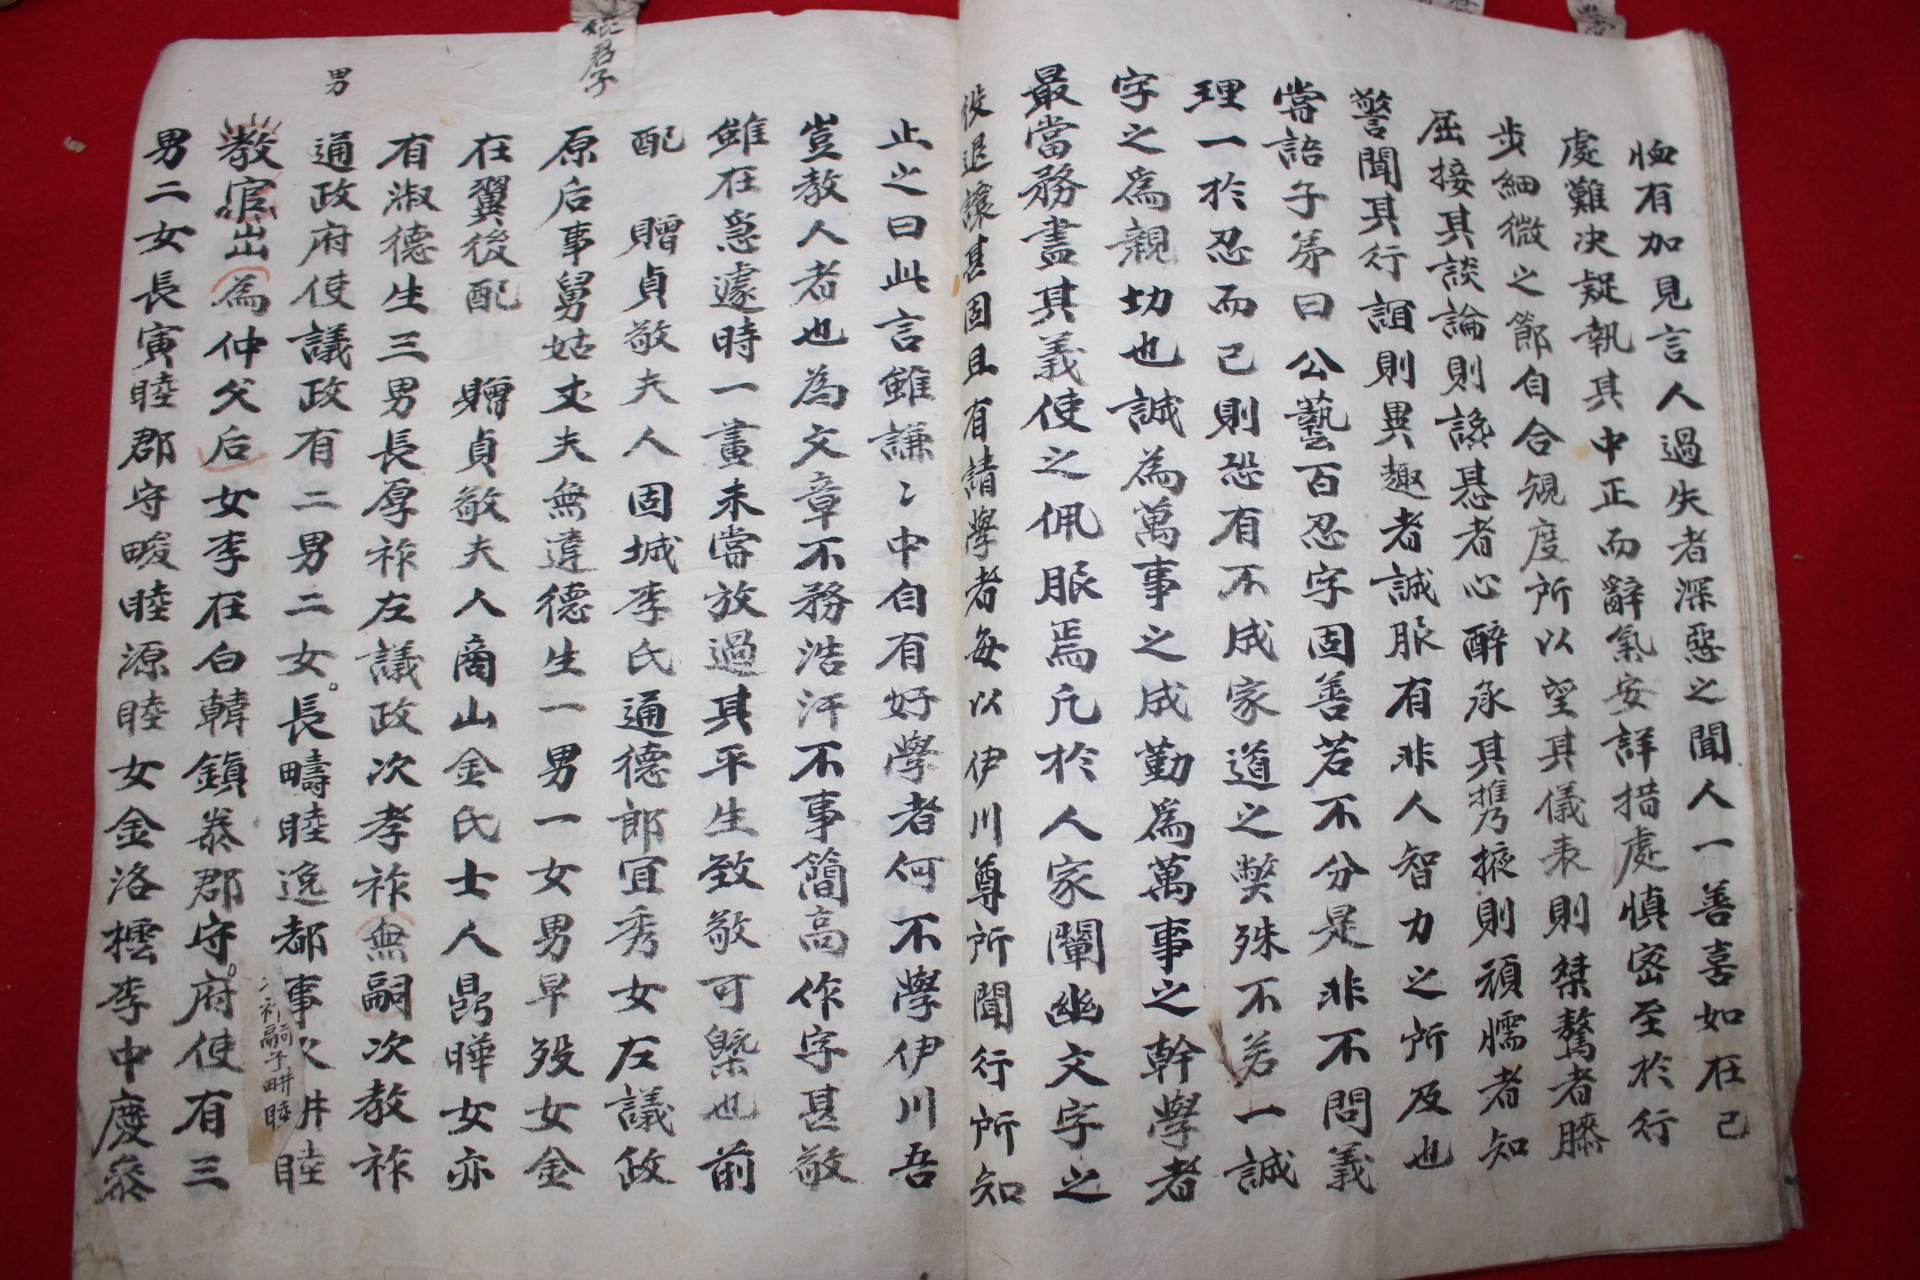 恤有加見言人過失者深惡之聞人一善喜如在己
處難決疑執其中正而辭氣安詳措處愼密至於行
步細微之節自合規度所以望其儀表則桀驁者膝
屈接其談論則諺惎者心醉承其携掖則頑懦者知
警聞其行誼則異趣者誠服有非人智力之所及也
嘗語子弟曰公藝百忍字固善若不分是非不問義
理一於忍而已則恐有不成家道之獘殊不若一誠
字之爲親切也誠爲萬事之成勤爲萬事之幹學者
最當務盡其義使之佩服焉凡於人家闡幽文字之
役退讓甚固且有請學者每以伊川尊所聞行所知
止之曰此言雖謙〻中自有好學者何不學伊川吾
豈敎人者也為文章不務浩汗不事簡高作字甚敬
雖在急遽時一畫未嘗放過其平生致敬可槩也前
配 贈貞敬夫人固城李氏通德郎宜秀女左議政
原后事舅姑丈夫無違德生一男一女男早歿女金
在翼後配 贈貞敬夫人商山金氏士人鼎曄女亦
有淑德生三男長厚祚左議政次孝祚無嗣次敎祚
通政府使議政有二男二女長疇睦逸都事次畊睦
敎官出為仲父后女李在白韓鎭泰郡守府使有三
男二女長寅睦郡守畯睦源睦女金洛㯶李中慶泰
男
嗣子畊睦